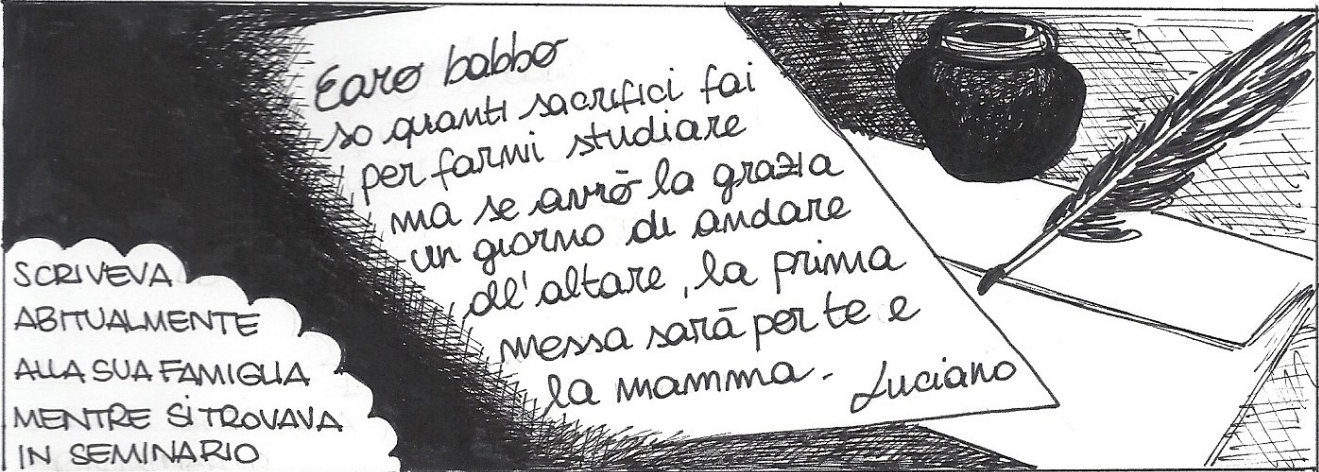 SCRIVEVA
ABITUALMENTE
ALLA SUA FAMIGLIA
MENTRE SI TROVAVA
IN SEMINARIO
Caro babbo
so quanti sacrifici fai
per farmi studiare
ma se avrò la grazia
un giorno di andare
all'altare, la prima
messa sarà per te e
la mamma.
Luciano